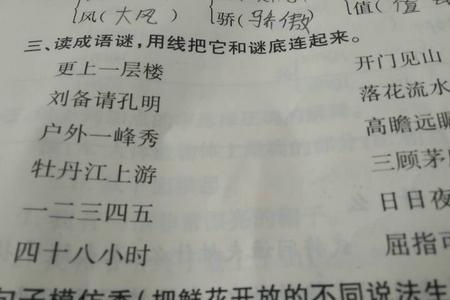 风(大风)
骄(骄傲)
值(
三、读成语谜,用线把它和谜底连起来。
更上一层楼 开门见山
刘备请孔明 落花流水
户外一峰秀 高瞻远瞩
牡丹江上游 三顾茅
一二三四五 日日夜
四十八小时 屈指可
句子模仿秀(把鲜花开放的不同说法生